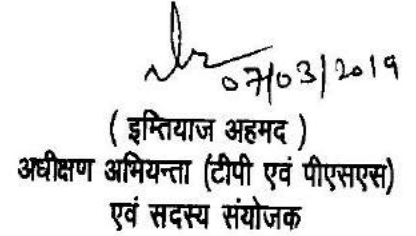 07/03/2019
( इम्तियाज अहमद )
अधीक्षण अभियन्ता (टीपी एवं पीएसएस)
एवं सदस्य संयोजक